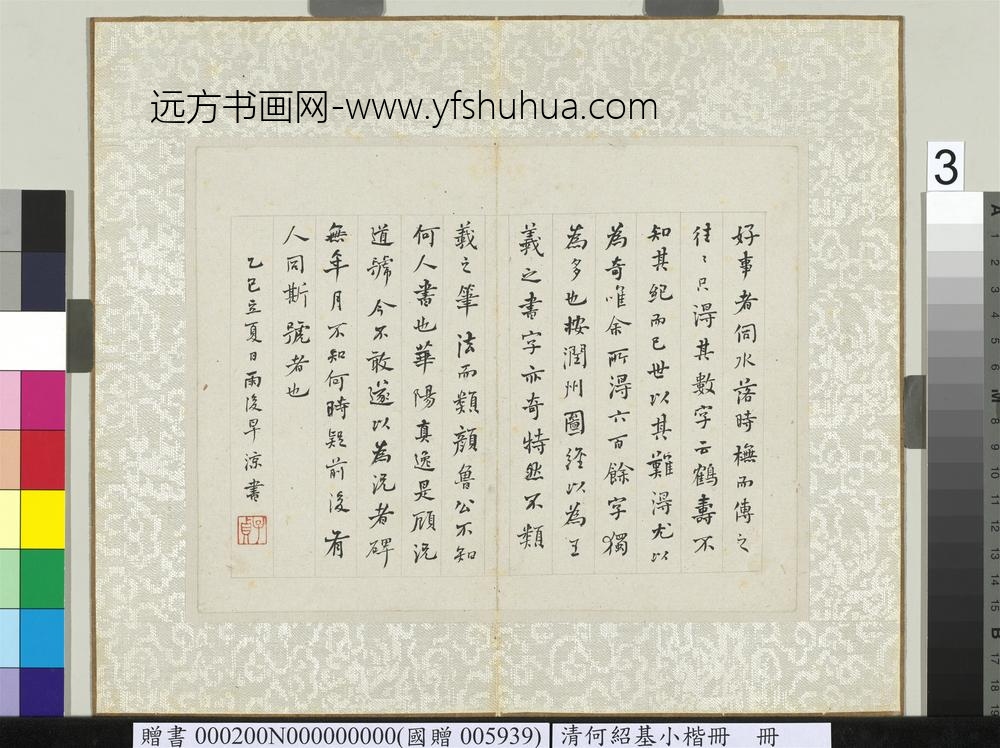 远方书画网-www.yfshuhua.com
3
好事者伺水落時模而傳之
往〻只得其數字云鶴壽不
知其紀而已世以其難得尤以
為奇唯余所得六百餘字獨
為多也按潤州圖經以為王
羲之書字亦奇特然不類
羲之筆法而類顏魯公不知
何人書也華陽真逸是顧況
道號今不敢遂以為況者碑
無年月不知何時疑前後有
人同斯號者也
乙巳立夏日雨後早涼書
子貞
A 1 2 3 4 5 6 M 8 9 10 11 12 13 14 15 B 17 18 19
贈書 000200N000000000(國贈 005939)
清何紹基小楷冊 冊